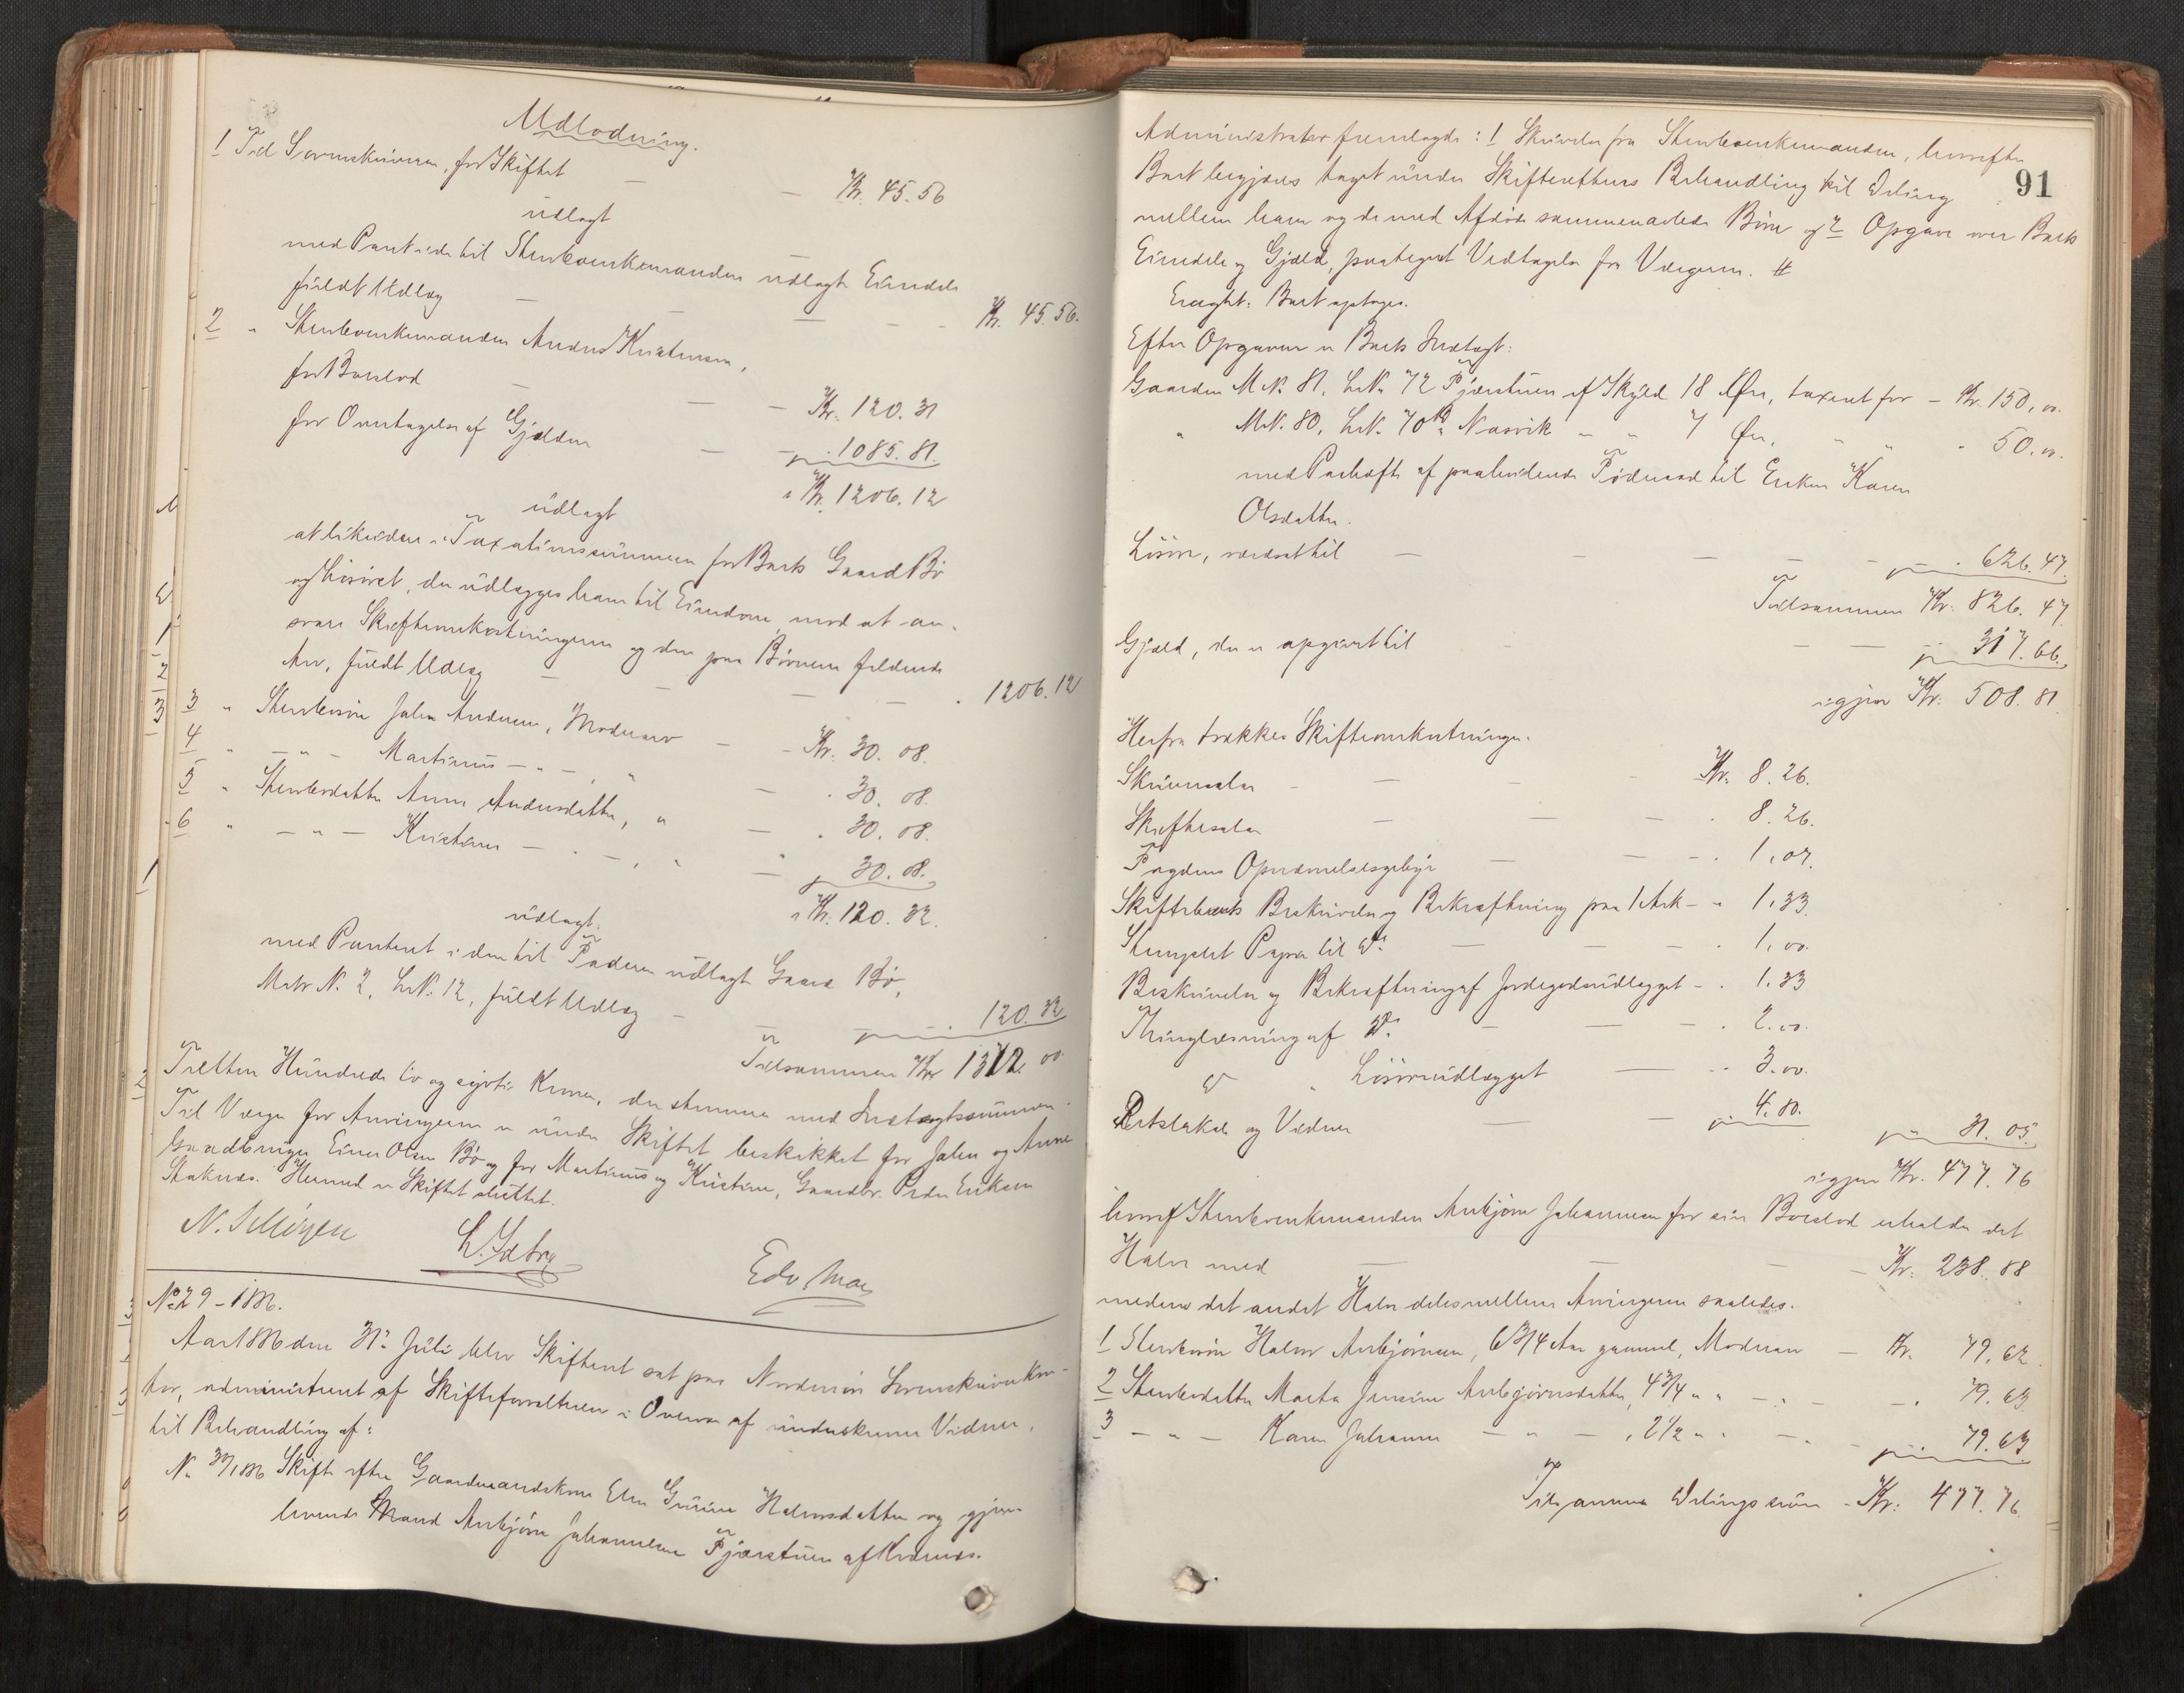 Udlodning.
1 Til Sorenskriveren, for Skiftet — — Kr. 45.56
udlagt
med Pant i de til Sterboenkemanden udlagte Eiendele
fuldt Udlæg — — — Kr. 45.56.
2 " Sterboenkemanden Anders Kristensen,
for Boeslod — — Kr. 120.31
for Overtagelse af Gjælden — — 1085.81.
Kr. 1206.12
udlagt
at likvidere i Taxationssummen for Boets Gaard Bø
og Løsøret, der udlægges ham til Eiendom mod at an-
svare Skifteomkostningerne og den paa Børnene faldende
Arv, fuldt Udlæg — — — 1206.12
3 " Sterbosøn Johan Andersen, Modrearv — Kr. 30.08.
4 " — " — Martinus — " — , " — . 30.08.
5 " Sterbodatter Anne Andersdatter, " — . 30.08.
6 " — " — Kristine — " — , " — 30.08.
Kr. 120.32.
udlagt
med Panteret i den til Faderen udlagte Gaard Bø,
Matr N. 2, L.N. 12, fuldt Udlæg — — — 120.32
Tilsammen Kr 1372.00
Tretten Hundrede to og syvti Kroner, der stemmer med Indtægtssummen.
Til Værge for Arvingerne er under Skiftet beskikket for Johan og Anne
Gaardbruger Einer Olsen Bø og for Martinus og Kristine, Gaardbr. Peder Eriksen
Staknes. Hermed er Skiftet sluttet.
Edv Moe
No 29 – 1886.
Aar 1886 den 31te Juli blev Skifteret sat paa Nordmøre Sorenskriverkon-
tor, administreret af Skifteforvalteren i Overvær af underskrevne Vidner,
til Behandling af:
N. 37/1886 Skifte efter Gaardmandskone Elen Gurine Halvorsdatter og gjen-
levende Mand Anbjørn Johannesen Fjærstuen af Kvernes.
91
Administrator fremlagde: 1 Skrivelse fra Sterboenkemanden, hvorefter
Boet begjæres taget under Skifterettens Behandling til Deling
mellem ham og de med Afdøde sammenavlede Børn og 2 Opgave over Boets
Eiendele og Gjæld, paategnet Vedtagelse fra Værgerne. #
Eragtet: Boet optages.
Efter Opgaven er Boets Indtægt:
Gaarden M.N. 81, L.N. 72 Fjærstuen af Skyld 18 Øre, taxeret for — Kr. 150,00.
" M.N. 80, L.N. 70B, Nasvik — " 7 Øre, " " . 50.00.
med Paahæfte af paahvilende Føderaad til Enken Karen
Olsdatter.
Løsøre, værdsat til — — — — — 626.47.
Tilsammen Kr. 826.47
Gjæld, der er opgivet til — — — 317.66.
igjen Kr. 508.81
Herfra trækkes Skifteomkostninger.
Skriversalær — — — Kr. 8.26.
Skiftesalær — — — . 8.26.
Fogdens Opnævnelsesgebyr — — — . 1.07.
Skiftebrevets Beskrivelse og Bekræftning paa 1 Ark — " 1.33.
Stemplet Papir til Do. — — — . 1,00.
Beskrivelse og Bekræftning af Jordegodsudlægget — . 1.33
Thinglæsning af Do. — — — . 2.00.
Do " Løsøreudlægget — — . 3.00.
Retslokale og Vidner — — 4.80. 31.05.
igjen Kr. 477.76
hvoraf Sterboenkemanden Anbjørn Johannesen for sin Boeslod erholder det
Halve med — — — — Kr. 238.88
medens det andet Halve deles mellem Arvingerne saaledes.
1 Sterbosøn Halvor Anbjørnsen, 6 3/4 Aar gammel, Modrearv — Kr. 79.62
2 Sterbodatter Marta Jensine Anbjørnsdatter, 4 3/4 " " — " — — . 79.63
3 — " — Karen Johanna — " — , 2 1/2 " " — " — 79.63
Tilsammen Delingssum — Kr. 477.76.